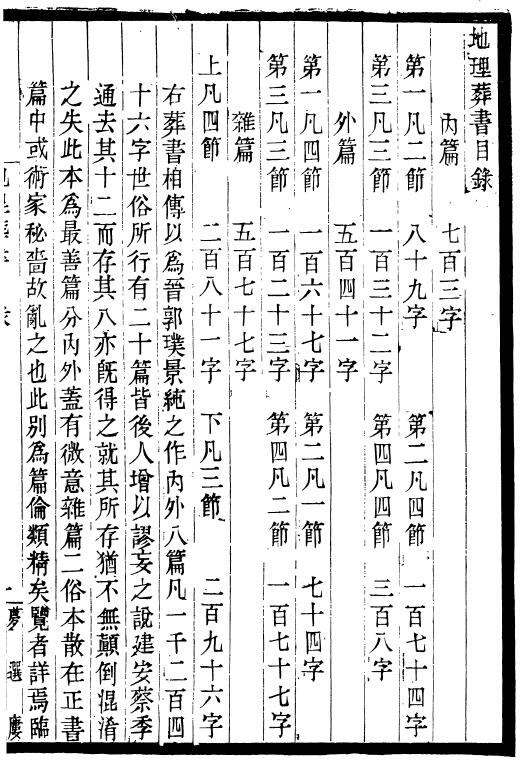 地理葬書目錄
內篇 七百三字
第一凡二節 八十九字 第二凡四節 一百七十四字
第三凡三節 一百三十二字 第四凡四節 三百八字
外篇 五百四十一字
第一凡四節 一百六十七字 第二凡一節 七十四字
第三凡三節 一百二十三字 第四凡二節 一百七十七字
雜篇 五百七十七字
上凡四節 二百八十一字 下凡三節 二百九十六字
右葬書相傳以爲晉郭璞景純之作內外八篇凡一千二百四
十六字世俗所行有二十篇皆後人增以謬妄之說建安蔡季
通去其十二而存其八亦旣得之就其所存猶不無顚倒混淆
之失此本爲最善篇分內外蓋有微意雜篇二俗本散在正書
篇中或術家秘嗇故亂之也此別爲篇倫類精矣覽者詳焉臨
夢選廔